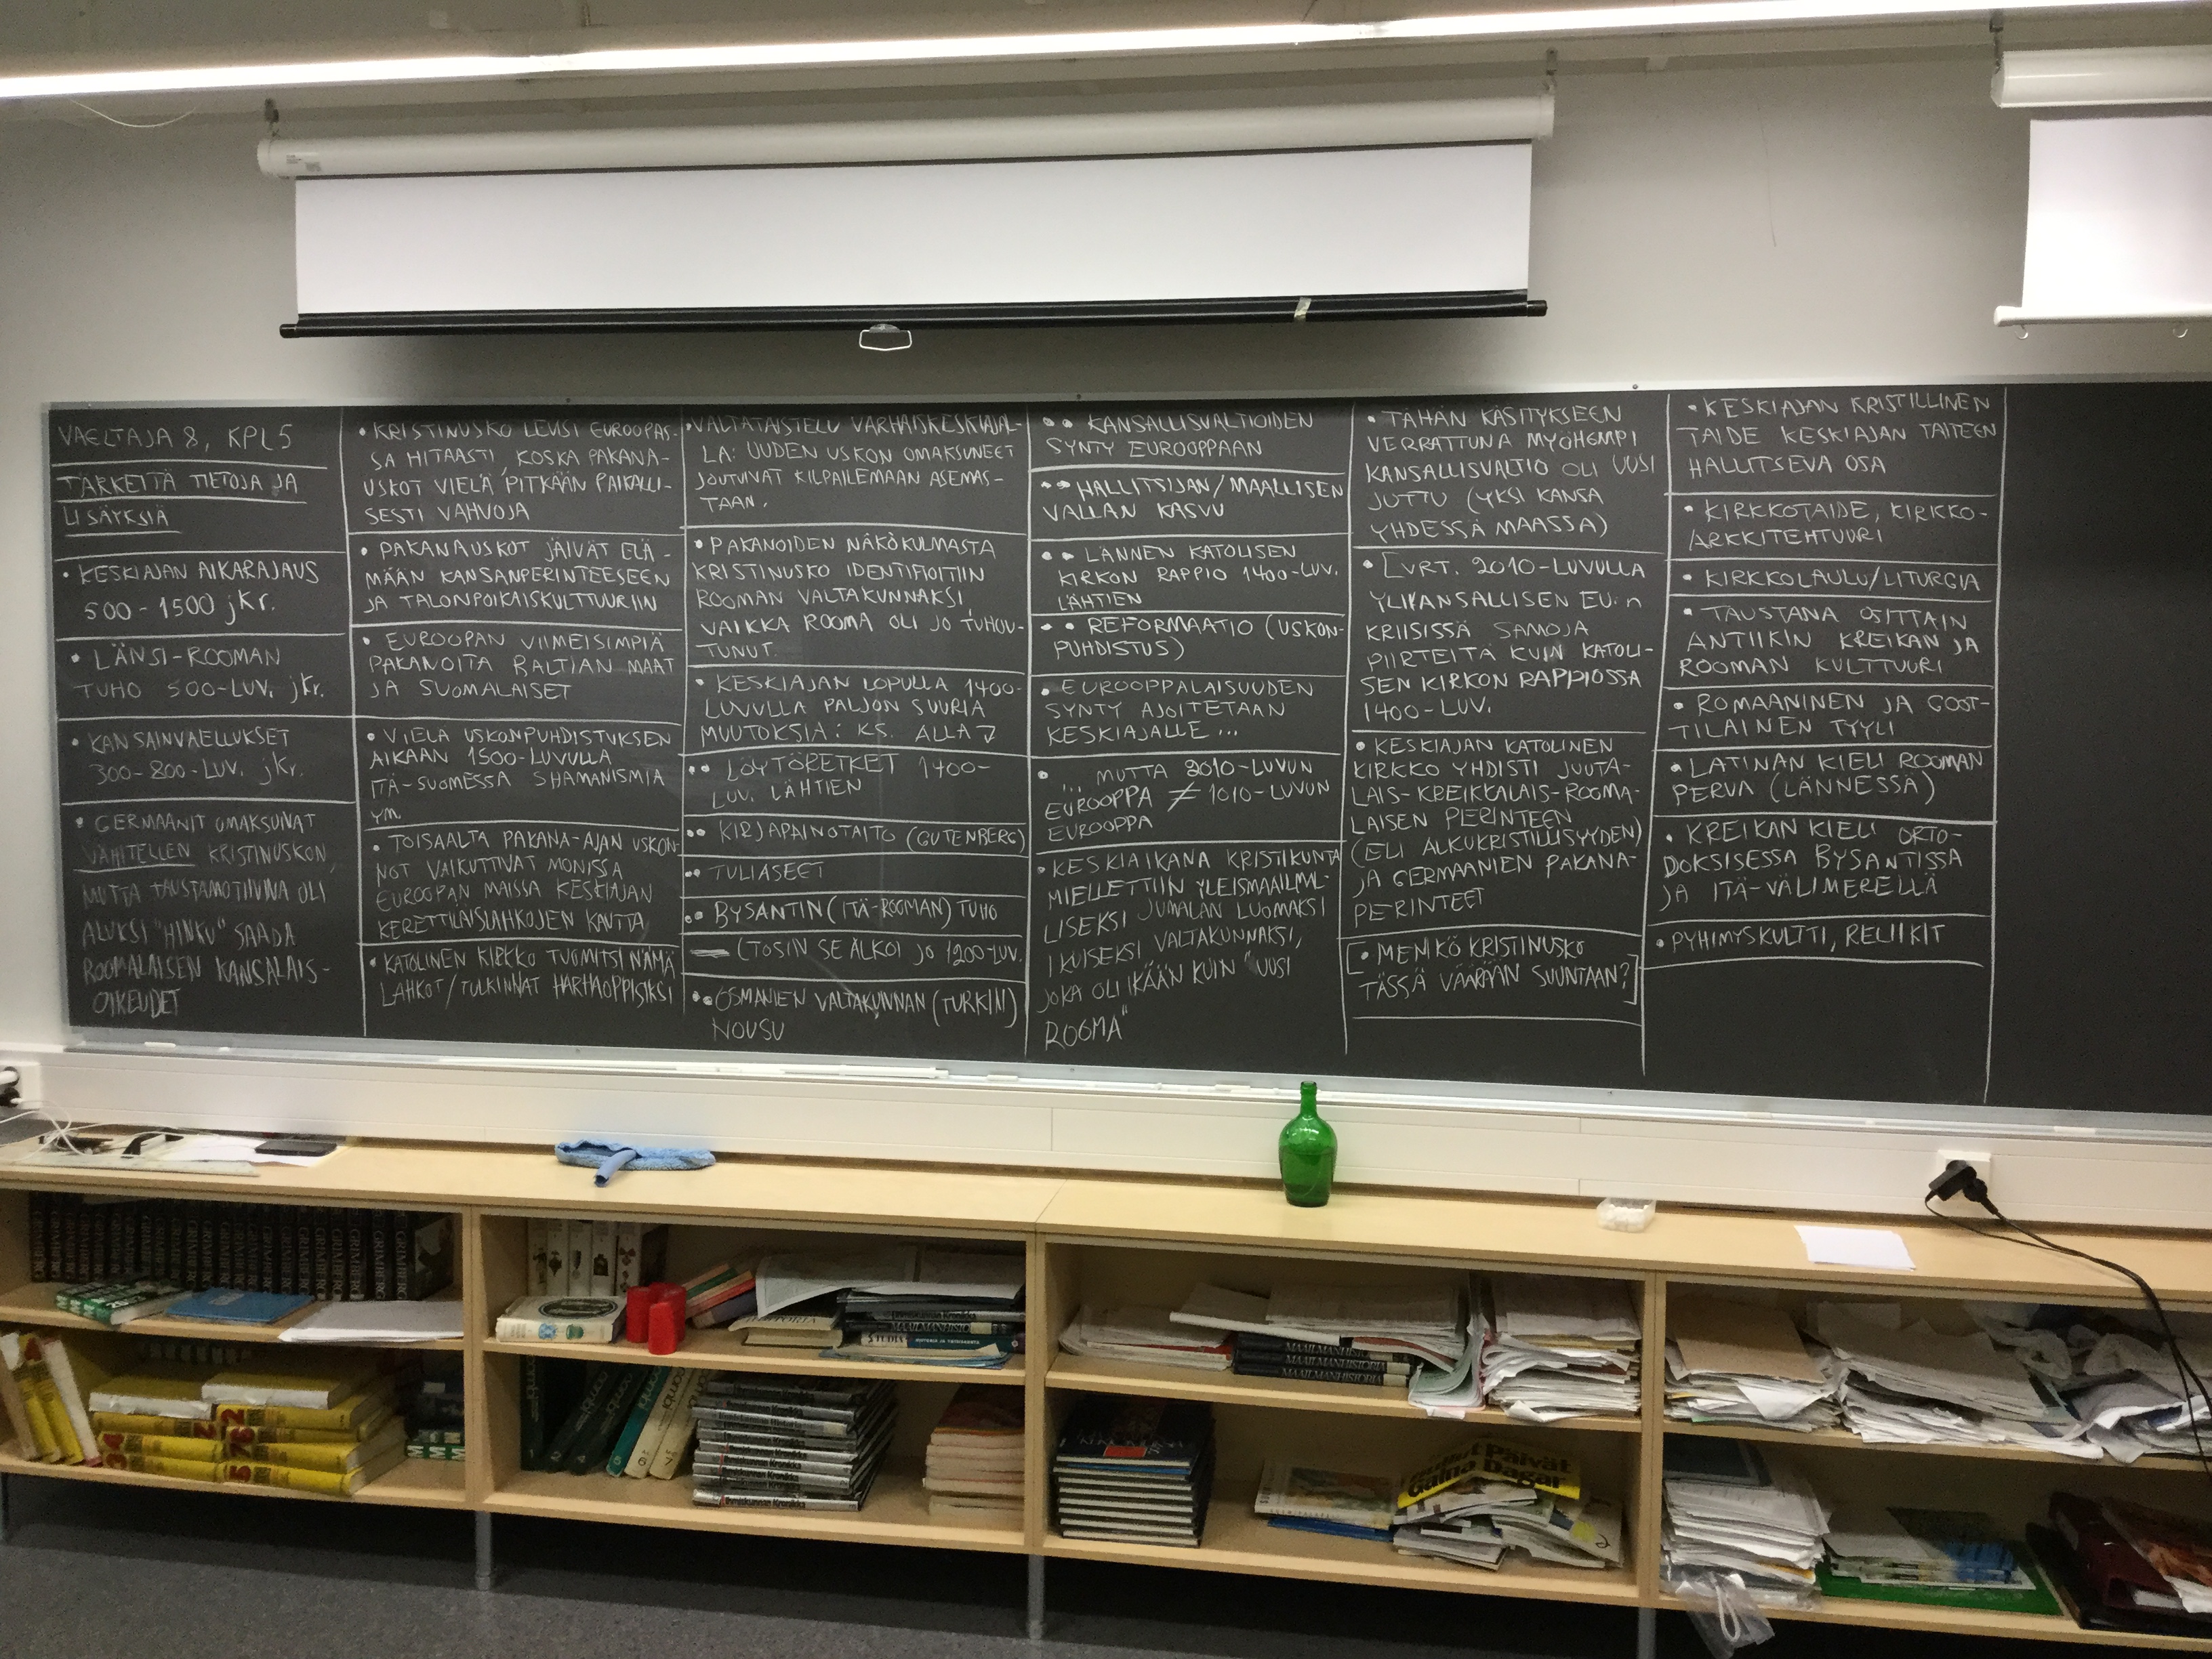 VAELTAJA 8, KPL 5
TÄRKEITÄ TIETOJA JA
LISÄYKSIÄ
• KESKIAJAN AIKARAJAUS
500-1500 jKr.
• LÄNSI-ROOMAN
TUHO 500-LUV. jKr.
• KANSAINVAELLUKSET
300-800-LUV. jKr.
• GERMAANIT OMAKSUIVAT
VÄHITELLEN KRISTINUSKON,
MUTTA TAUSTAMOTIIVINA OLI
ALUKSI "HINKU" SAADA
ROOMALAISEN KANSALAIS-
OIKEUDET
• KRISTINUSKO LEVISI EUROOPAS-
SA HITAASTI, KOSKA PAKANA-
USKOT VIELÄ PITKÄÄN PAIKALLI-
SESTI VAHVOJA
• PAKANAUSKOT JÄIVÄT ELÄ-
MÄÄN KANSANPERINTEESEEN
JA TALONPOIKAISKULTTUURIIN
• EUROOPAN VIIMEISIMPIÄ
PAKANOITA BALTIAN MAAT
JA SUOMALAISET
• VIELÄ USKONPUHDISTUKSEN
AIKAAN 1500-LUVULLA
ITÄ-SUOMESSA SHAMANISMIA
YM.
• TOISAALTA PAKANA-AJAN USKON-
NOT VAIKUTTIVAT MONISSA
EUROOPAN MAISSA KESKIAJAN
KERETTILÄISLAHKOJEN KAUTTA
• KATOLINEN KIRKKO TUOMITSI NÄMÄ
LAHKOT/TULKINNAT HARHAOPPISIKSI
• VALTATAISTELU VARHAISKESKIAJAL-
LA: UUDEN USKON OMAKSUNEET
JOUTUIVAT KILPAILEMAAN ASEMAS-
TAAN.
• PAKANOIDEN NÄKÖKULMASTA
KRISTINUSKO IDENTIFIOITIIN
ROOMAN VALTAKUNNAKSI,
VAIKKA ROOMA OLI JO TUHOU-
TUNUT.
• KESKIAJAN LOPULLA 1400-
LUVULLA PALJON SUURIA
MUUTOKSIA: KS. ALLA
•• LÖYTÖRETKET 1400-
LUV. LÄHTIEN
•• KIRJAPAINOTAITO (GUTENBERG)
•• TULIASEET
•• BYSANTIN (ITÄ-ROOMAN) TUHO
— (TOSIN SE ALKOI JO 1200-LUV.
•• OSMANIEN VALTAKUNNAN (TURKIN)
NOUSU
•• KANSALLISVALTIOIDEN
SYNTY EUROOPPAAN
•• HALLITSIJAN/MAALLISEN
VALLAN KASVU
•• LÄNNEN KATOLISEN
KIRKON RAPPIO 1400-LUV.
LÄHTIEN
•• REFORMAATIO (USKON-
PUHDISTUS)
• EUROOPPALAISUUDEN
SYNTY AJOITETAAN
KESKIAJALLE...
• ... MUTTA 2010-LUVUN
EUROOPPA ≠ 1010-LUVUN
EUROOPPA
• KESKIAIKANA KRISTIKUNTA
MIELLETTIIN YLEISMAAILMAL-
LISEKSI JUMALAN LUOMAKSI
IKUISEKSI VALTAKUNNAKSI,
JOKA OLI IKÄÄN KUIN "UUSI
ROOMA"
• TÄHÄN KÄSITYKSEEN
VERRATTUNA MYÖHEMPI
KANSALLISVALTIO OLI UUSI
JUTTU (YKSI KANSA
YHDESSÄ MAASSA)
• [VRT. 2010-LUVULLA
YLIKANSALLISEN EU:n
KRIISISSÄ SAMOJA
PIIRTEITÄ KUIN KATOLI-
SEN KIRKON RAPPIOSSA
1400-LUV.
• KESKIAJAN KATOLINEN
KIRKKO YHDISTI JUUTA-
LAIS-KREIKKALAIS-ROOMA-
LAISEN PERINTEEN
(ELI ALKUKRISTILLISYYDEN)
JA GERMAANIEN PAKANA-
PERINTEET
[• MENIKÖ KRISTINUSKO
TÄSSÄ VÄÄRÄÄN SUUNTAAN?]
• KESKIAJAN KRISTILLINEN
TAIDE KESKIAJAN TAITEEN
HALLITSEVA OSA
• KIRKKOTAIDE, KIRKKO-
ARKKITEHTUURI
• KIRKKOLAULU/LITURGIA
• TAUSTANA OSITTAIN
ANTIIKIN KREIKAN JA
ROOMAN KULTTUURI
• ROMAANINEN JA GOOT-
TILAINEN TYYLI
• LATINAN KIELI ROOMAN
PERUA (LÄNNESSÄ)
• KREIKAN KIELI ORTO-
DOKSISESSA BYSANTISSA
JA ITÄ-VÄLIMERELLÄ
• PYHIMYSKULTTI, RELIIKIT
GRIMBERG
MAAILMANHISTORIA
MAAILMANHISTORIA
MAAILMANHISTORIA
Ihmiskunnan Kronikka
Ihmiskunnan Kronikka
Ihmiskunnan Kronikka
Päivät
Galna Dagar